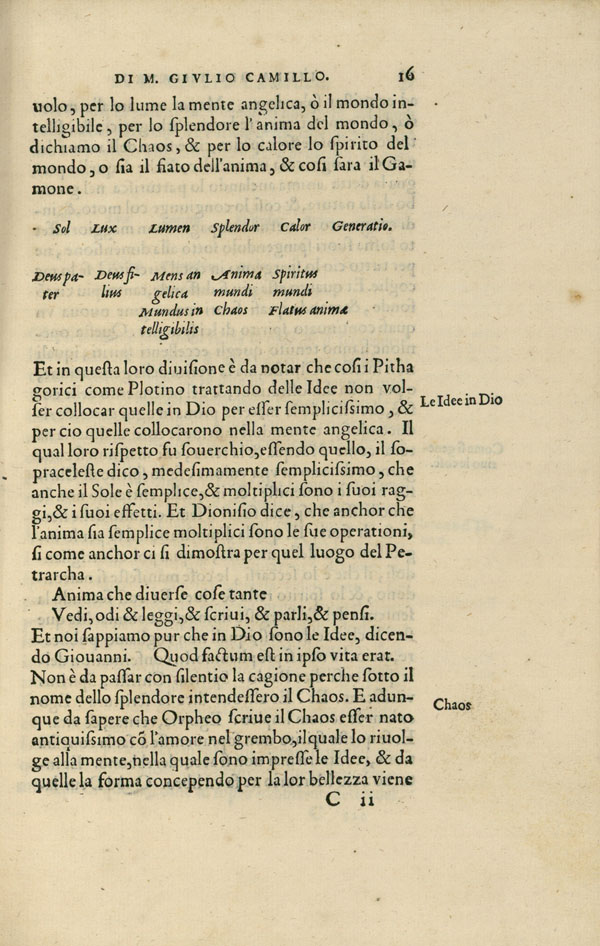 DI M. GIVLIO CAMILLO. 16
uolo, per lo lume la mente angelica, ò il mondo in-
telligibile, per lo ſplendore l'anima del mondo, ò
dichiamo il Chaos, & per lo calore lo ſpirito del
mondo, o ſia il fiato dell'anima, & coſi ſara il Ga-
mone.
Sol Lux Lumen Splendor Calor Generatio.
Deus pa- Deus fi- Mens an Anima Spiritus
ter lius gelica mundi mundi
Mundus in Chaos Flatus animæ
telligibilis
Et in queſta loro diuiſione è da notar che coſi i Pitha
gorici come Plotino trattando delle Idee non vol-
ſer collocar quelle in Dio per eſſer ſempliciſsimo, & Le Idee in Dio
per cio quelle collocarono nella mente angelica. Il
qual loro riſpetto fu ſouerchio, eſſendo quello, il ſo-
praceleſte dico, medeſimamente ſempliciſsimo, che
anche il Sole è ſemplice, & moltiplici ſono i ſuoi rag-
gi, & i ſuoi effetti. Et Dioniſio dice, che anchor che
l'anima ſia ſemplice moltiplici ſono le ſue operationi,
ſi come anchor ci ſi dimoſtra per quel luogo del Pe-
trarcha.
Anima che diuerſe coſe tante
Vedi, odi & leggi, & ſcriui, & parli, & penſi.
Et noi ſappiamo pur che in Dio ſono le Idee, dicen-
do Giouanni. Quod factum eſt in ipſo vita erat.
Non è da paſſar con ſilentio la cagione perche ſotto il
nome dello ſplendore intendeſſero il Chaos. E adun- Chaos
que da ſapere che Orpheo ſcriue il Chaos eſſer nato
antiquiſsimo cō l'amore nel grembo, ilquale lo riuol-
ge alla mente, nella quale ſono impreſſe le Idee, & da
quelle la forma concependo per la lor bellezza viene
C ii